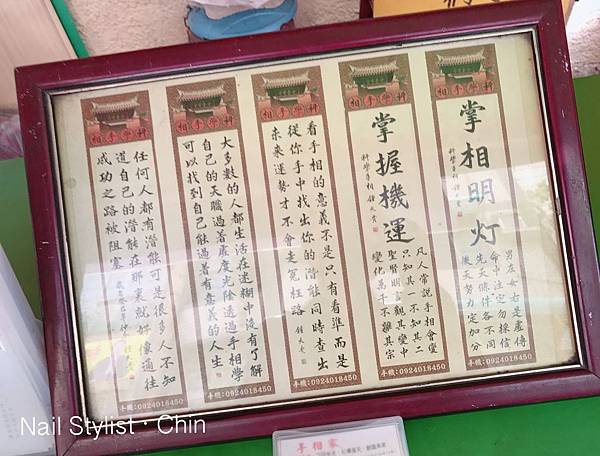 科學手相
掌相明灯
科學手相鍾文貴
男左女右是虛傳
命中注定勿採信
先天條件各不同
後天努力定加分
手機:0924018450
科學手相
掌握機運
科學手相鍾文貴
凡人常說手相會變
只知其一不知其二
聖賢明言觀其變中
變化萬千不離其宗
手機:0924018450
科學手相
看手相的意義不是只有看準而是
從你手中找出你的潛能同時查出
未來運勢才不會走冤枉路
鍾文貴
手機:0924018450
科學手相
大多數的人都生活在迷糊中沒有了解
自己的天職過著虛度光陰透過手相學
可以找到自己能過著有意義的人生
手機:0924018450
科學手相
任何人都有潛能可是很多人不知
道自己的潛能在那裏就好像通往
成功之路被阻塞
手機:0924018450
手相家
Nail Stylist · Chin